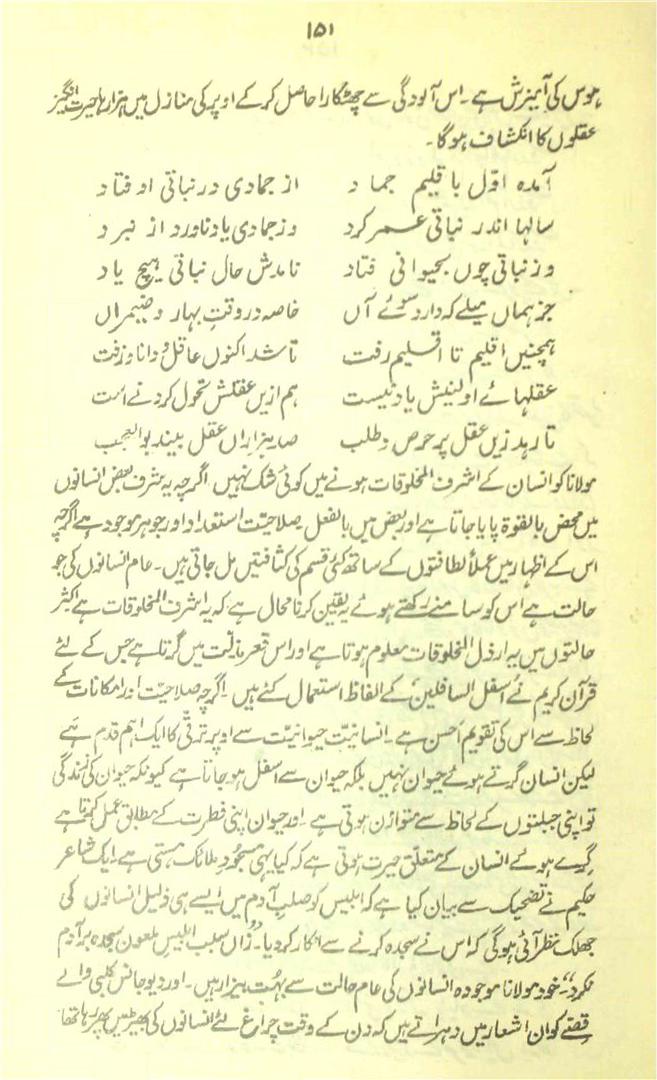 ۱۵۱
ہوس کی آمیزش ہے۔ اس آلودگی سے چھٹکارا حاصل کرکے اوپر کی منازل میں ہزارہا حیرت انگیز
عقلوں کا انکشاف ہوگا۔
آمدہ اوّل باقلیم جماد از جمادی در نباتی اوفتاد
سالہا اندر نباتی عمر کرد وز جمادی یاد ناورد از نبرد
وز نباتی چوں بحیوانی فتاد نامدش حال نباتی ہیچ یاد
جز ہماں میلے کہ دارد سوئے آں خاصہ در وقتِ بہار و ضیمراں
ہمچنیں اقلیم تا اقلیم رفت تا شد اکنوں عاقل و دانا و زفت
عقلہائے اولینش یاد نیست ہم ازیں عقلش تحول کردنے است
تا رہد زیں عقل پر حرص و طلب صد ہزاراں عقل بیند بوالعجب
مولانا کو انسان کے اشرف المخلوقات ہونے میں کوئی شک نہیں اگرچہ یہ شرف بعض انسانوں
میں محض بالقوۃ پایا جاتا ہے اور بعض میں بالفعل۔ صلاحیت استعداد اور جوہر موجود ہے اگرچہ
اس کے اظہار میں عملاً لطافتوں کے ساتھ کئی قسم کی کثافتیں مل جاتی ہیں۔ عام انسانوں کی جو
حالت ہے اس کو سامنے رکھتے ہوئے یہ یقین کرنا محال ہے کہ یہ اشرف المخلوقات ہے اکثر
حالتوں میں یہ ارذل المخلوقات معلوم ہوتا ہے اور اس قعر مذلّت میں گرتا ہے جس کے لئے
قرآن کریم نے اسفل السافلین کے الفاظ استعمال کئے ہیں۔ اگرچہ صلاحیت اور امکانات کے
لحاظ سے اس کی تقویم احسن ہے۔ انسانیّت حیوانیّت سے اوپر ترقی کا ایک اہم قدم ہے
لیکن انسان گرتے ہوئے حیوان نہیں بلکہ حیوان سے اسفل ہوجاتا ہے کیونکہ حیوان کی زندگی
تو اپنی جبلتوں کے لحاظ سے متوازن ہوتی ہے۔ اور حیوان اپنی فطرت کے مطابق عمل کرتا ہے
گرے ہوئے انسان کے متعلق حیرت ہوتی ہے کہ کیا یہی مسجودِ ملائک ہستی ہے۔ ایک شاعر
حکیم نے تضحیک سے بیان کیا ہے کہ ابلیس کو صلبِ آدم میں ایسے ہی ذلیل انسانوں کی
جھلک نظر آئی ہوگی کہ اس نے سجدہ کرنے سے انکار کردیا۔ "زاں سبب ابلیس ملعون سجدہ بر آدم
نکرد"۔ خود مولانا موجودہ انسانوں کی عام حالت سے بہت بیزار ہیں۔ اور دیوجانس کلبی والے
قصّے کو ان اشعار میں دہراتے ہیں کہ دن کے وقت چراغ لئے انسانوں کی بھیڑ میں پھر رہا تھا